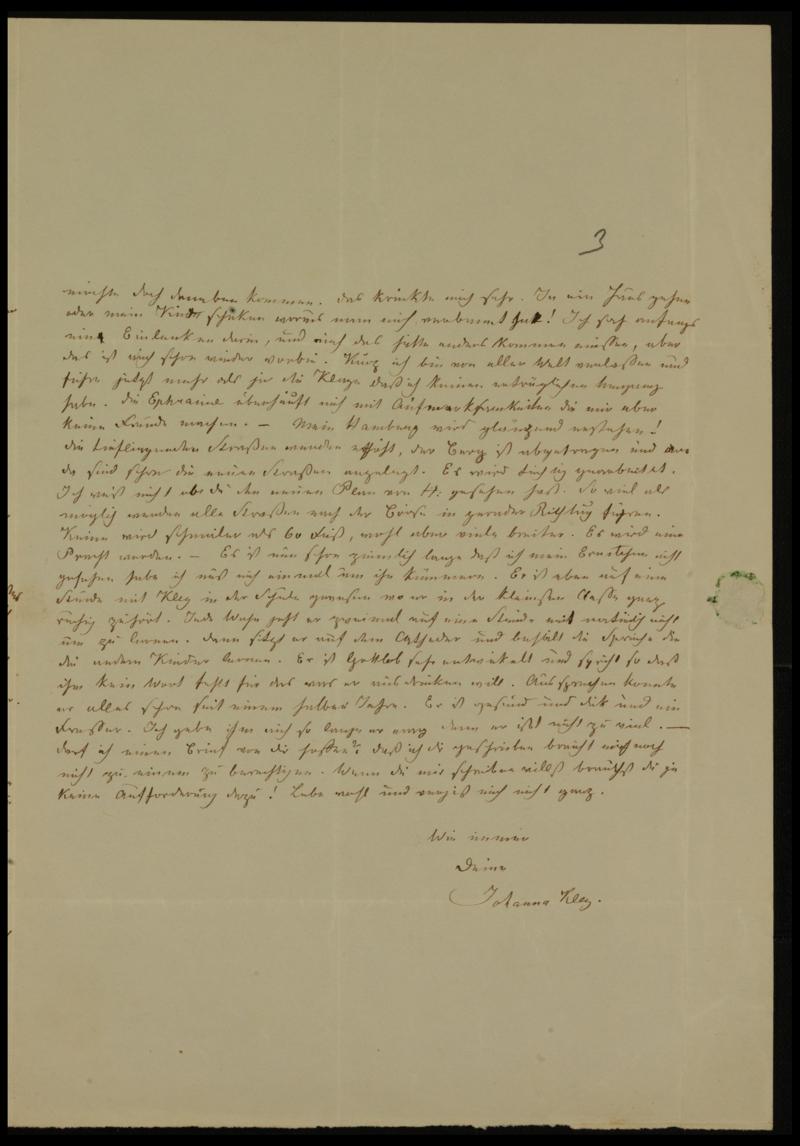 3
möchte doch daneben kommen. Das kränkte mich sehr. In ein Haus gehen
oder mein Kind schicken woraus man mich verbannt hat! Ich sah anfangs
ein Einlenken darin, und auch das hätte anders kommen müssen, aber
das ist auch schon wieder vorbei. Kurz ich bin von aller Welt verlassen und
führe jetzt mehr als je die Klage daß ich keinen erträglichen Umgang
habe. Die Ephraime überhäuft mich mit Aufmerksamkeiten die mir aber
keine Freude machen. – Mein Hamburg wird glänzend erstehen!
Die tiefliegenden Straßen werden erhöht, der Berg ist abgetragen und
da sind schon die neuen Straßen angelegt. Es wird tüchtig gearbeitet.
Ich weiß nicht ob du den neuen Plan von H: gesehen hast. So viel als
möglich werden alle Straßen nach der Börse in gerader Richtug führen.
Keine wird schmäler als 60 Fuß, wohl aber viele breiter. Es wird eine
Pracht werden. – Es ist nun schon ziemlich lange daß ich mein Ernstchen nicht
gesehen habe ich muß mich einmal um ihn kümmern. Er ist eben auf eine
Stunde mit Kley in der Schule gewesen wo er in der kleinsten Classe ganz
ruhig zuhört. Jede Woche geht er zweimal auf eine Stunde mit natürlich nicht
um zu lernen. Dann sitzt er auf dem Catheder und behält die Sprüche die
die andern Kinder lernen. Er ist Gottlob sehr entwickelt und spricht so daß
ihm kein Wort fehlt für das was er ausdrücken will. Aussprechen konnte
er alles schon seit einem halben Jahre. Er ist gesund und dick und ein
Fresser. Ich gebe ihm auch so lange er mag denn er ißt nicht zu viel. –
darf ich einen Brief von dir hoffen? daß ich dir geschrieben braucht dich noch
nicht zu einem zu berechtigen. Wenn du mir schreiben willst brauchst du ja
keine Aufforderung dazu! Lebe wohl und vergiß mich nicht ganz.
Wie immer
Deine
Johanna Kley.